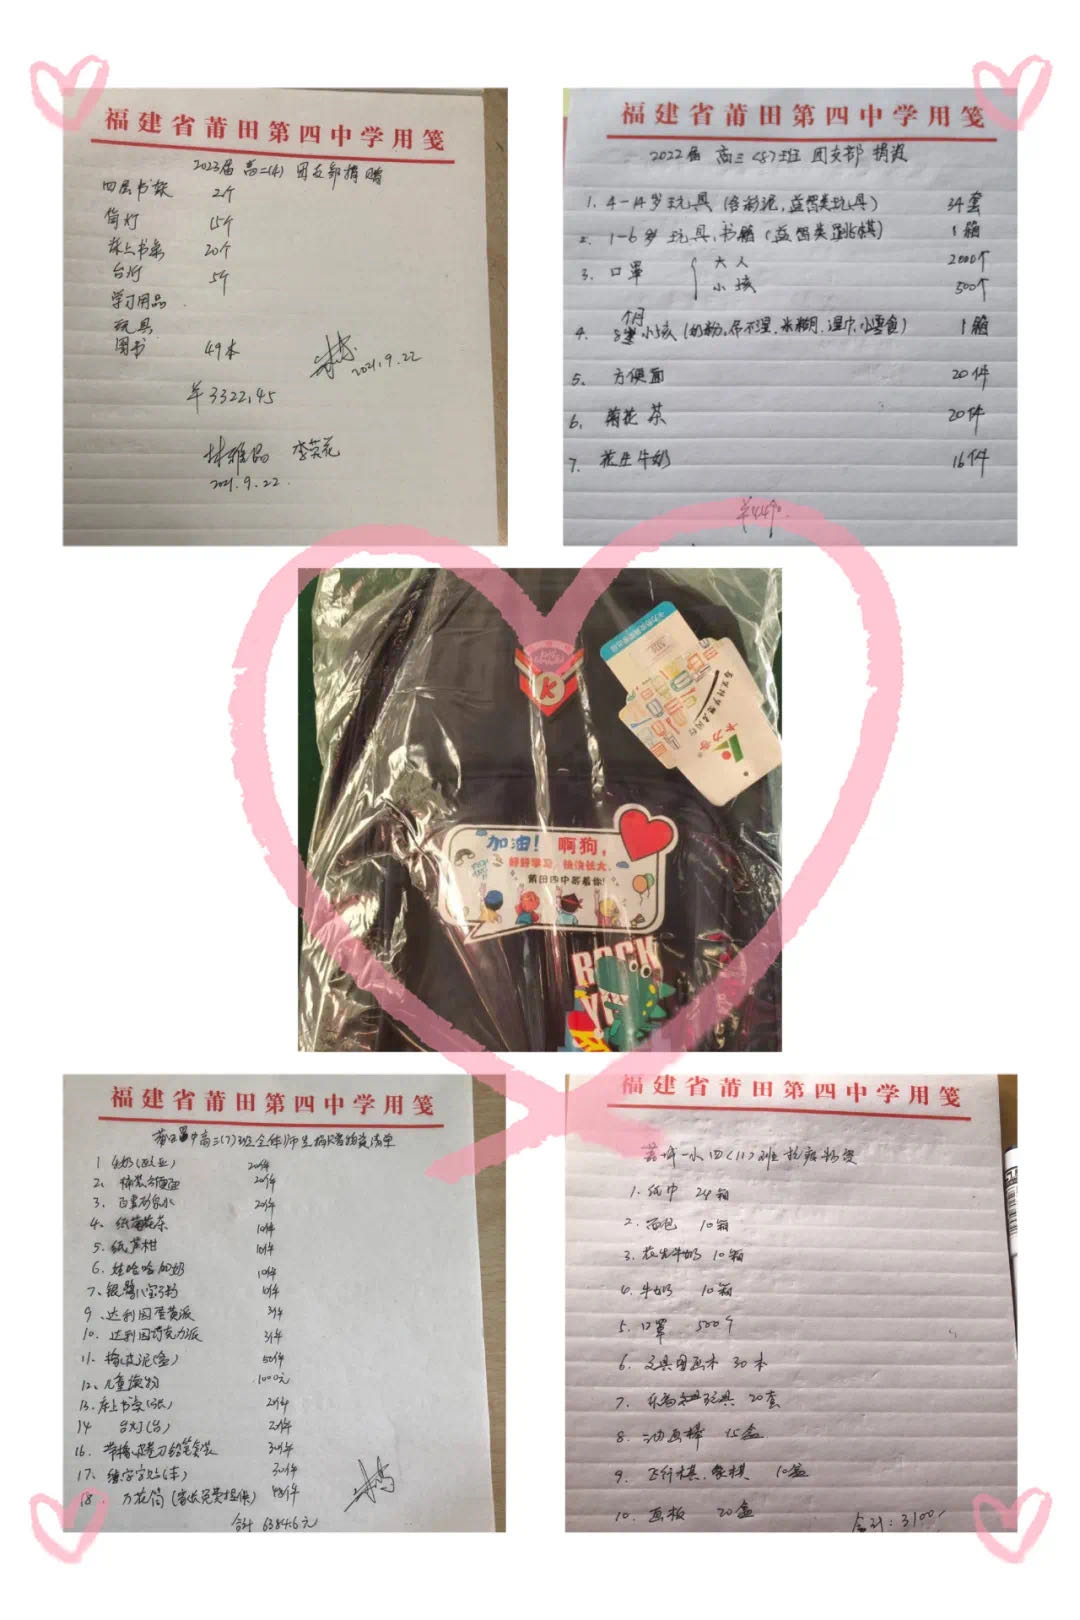 福建省莆田第四中学用笺
2023届 高二(4) 团支部捐赠
四层书架 2个
筒灯 15个
床上书桌 20个
台灯 5个
学习用品
玩具
图书 49本
2021.9.22
¥3322.45
2021.9.22
福建省莆田第四中学用笺
2022届 高三(8)班 团支部 捐资
1. 4-14岁玩具(含彩泥,益智类玩具) 34套
2. 1-6岁 玩具、书籍(益智类跳棋) 1箱
3. 口罩 大人 2000个
小孩 500个
4. 8个月小孩(奶粉,尿不湿,米糊,湿巾,小零食) 1箱
5. 方便面 20件
6. 菊花茶 20件
7. 花生牛奶 16件
K
卡力奇
加油! 啊狗,
好好学习、快快长大,
莆田四中等着你!
ROCK
福建省莆田第四中学用笺
莆田四中高三(7)班全体师生捐赠物资清单
1 20件
2. 方便面 20件
3. 百岁山矿泉水 20件
4. 纸菊花茶 10件
5. 纸芦柑 10件
6. 娃哈哈加奶 10件
7. 银鹭八宝粥 10件
9. 达利园蛋黄派 3件
10. 达利园巧克力派 3件
11. 橡皮泥(盒) 50件
12. 儿童读物 1000元
13. 床上书桌(张) 20件
14 台灯(台) 20件
16. 铅笔套装 30件
17. 练字字帖(本) 30件
18. 万花筒(家长免费提供) 48件
合计 6384.6元
福建省莆田第四中学用笺
1. 纸巾 24箱
2. 面包 10箱
3. 花生牛奶 10箱
4. 牛奶 10箱
5. 口罩 500个
6. 文具图画本 30本
7. 乐高玩具 20套
8. 油画棒 15盒
9. 飞行棋、象棋 10盒
10. 画板 20盒
合计:3100